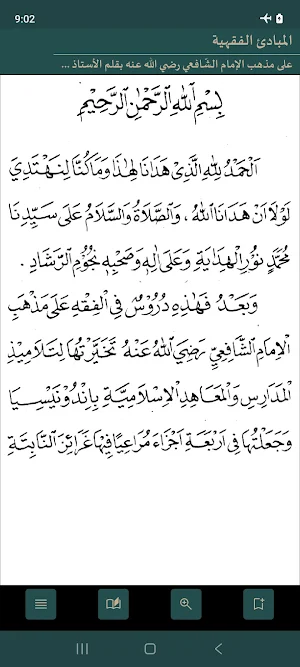 9:02
المبادئ الفقهية
على مذهب الإمام الشافعي رضي الله عنه بقلم الأستاذ ...
بِسْمِ اللهِ الرَّحْمٰنِ الرَّحِيْمِ
اَلْحَمْدُ لِلّٰهِ الَّذِيْ هَدَانَا لِهٰذَا وَمَا كُنَّا لِنَهْتَدِيَ
لَوْلَا اَنْ هَدَانَا اللهُ ، وَالصَّلَاةُ وَالسَّلَامُ عَلَى سَيِّدِنَا
مُحَمَّدٍ نُوْرِ الْهِدَايَةِ وَعَلَى اٰلِهِ وَصَحْبِهِ نُجُوْمِ الرَّشَادِ .
وَبَعْدُ فَهٰذِهِ دُرُوْسٌ فِي الْفِقْهِ عَلَى مَذْهَبِ
الْاِمَامِ الشَّافِعِيِّ رَضِيَ اللهُ عَنْهُ تَخَيَّرْتُهَا لِتَلَامِيْذِ
الْمَدَارِسِ وَالْمَعَاهِدِ الْاِسْلَامِيَّةِ بِاِنْدُوْنِيْسِيَا
وَجَعَلْتُهَا فِى اَرْبَعَةِ اَجْزَاءَ مُرَاعِيًا فِيْهَا غَرَائِزَ النَّابِتَةِ